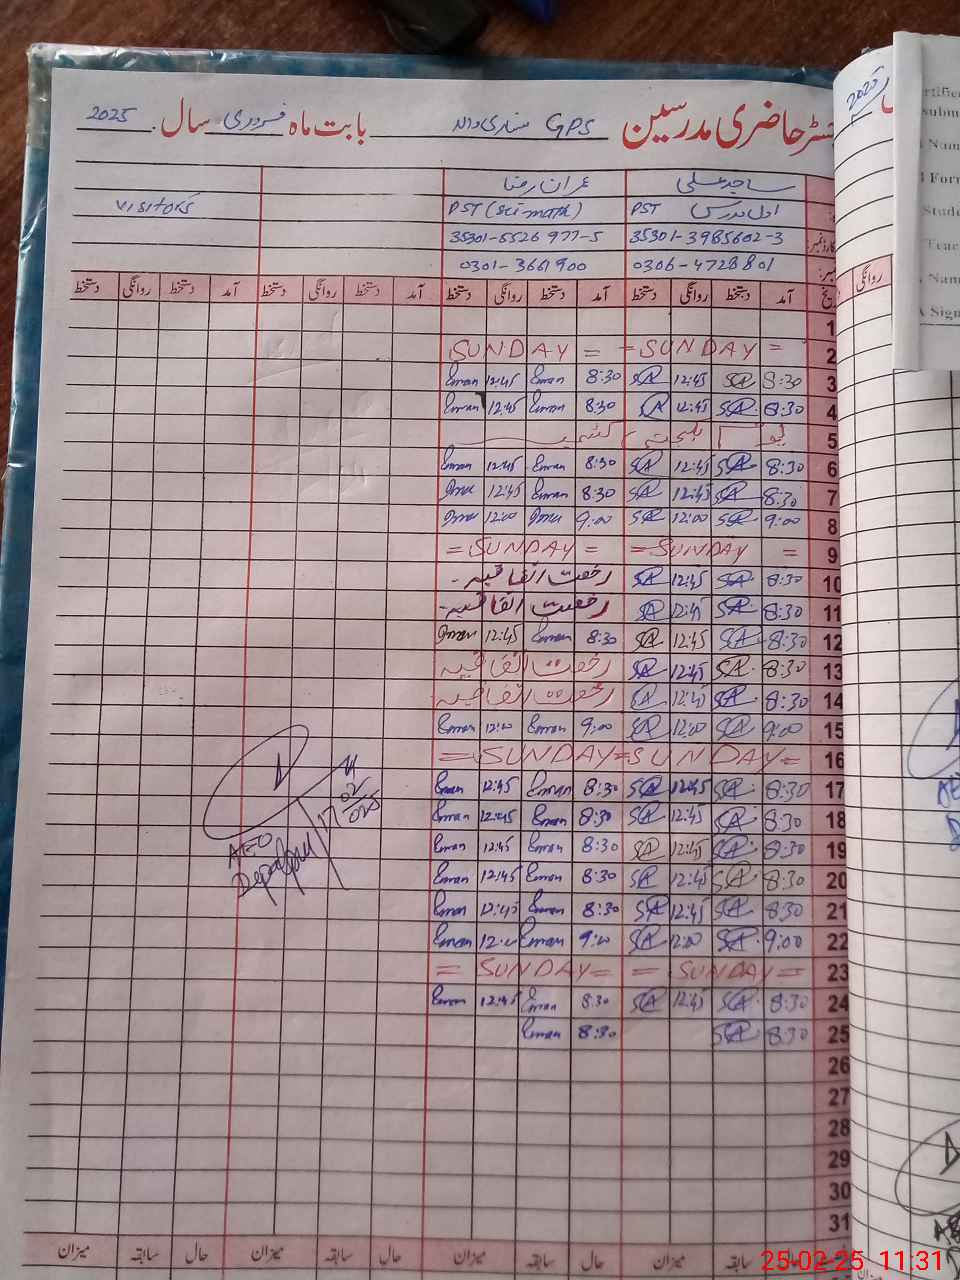 رجسٹر حاضری مدرسین GPS بابت ماہ فروری سال 2025
ساجد علی عمران رضا
اول مدرس PST PST (sci math) VISITORS
35301-3985602-3 35301-5526977-5
0306-4728801 0301-3661900
آمد دستخط روانگی دستخط آمد دستخط روانگی دستخط آمد دستخط روانگی دستخط آمد دستخط روانگی دستخط
1
2 = SUNDAY = = SUNDAY
3 8:30 SA 12:45 SA 8:30 Eman 12:45 Eman
4 8:30 SA 12:45 SA 8:30 Eman 12:45 Eman
5 یوم یکجہتی کشمیر
6 8:30 SA 12:45 SA 8:30 Eman 12:45 Eman
7 8:30 SA 12:45 SA 8:30 Eman 12:45
8 9:00 SA 12:00 SA 9:00 12:00
9 = SUNDAY = = SUNDAY =
10 8:30 SA 12:45 SA رخصت اتفاقیہ
11 8:30 SA 12:45 SA رخصت اتفاقیہ
12 8:30 SA 12:45 SA 8:30 Eman 12:45 Eman
13 8:30 SA 12:45 SA رخصت اتفاقیہ
14 8:30 SA 12:45 SA رخصت اتفاقیہ
15 9:00 SA 12:00 SA 9:00 Eman 12:00 Eman
16 = SUNDAY = SUNDAY =
17 8:30 SA 12:45 SA 8:30 Eman 12:45 Eman
18 8:30 SA 12:45 SA 8:30 Eman 12:45 Eman
19 8:30 SA 12:45 SA 8:30 Eman 12:45 Eman
20 8:30 SA 12:45 SA 8:30 Eman 12:45 Eman
21 8:30 SA 12:45 SA 8:30 Eman 12:45 Eman
22 9:00 SA 12:00 SA 9:00 Eman 12:00 Eman
23 = SUNDAY = = SUNDAY =
24 8:30 SA 12:45 SA 8:30 Eman 12:45 Eman
25 8:30 SA 8:30 Eman
26
27
28
29
30
31
AEO
17/02
2025
سابقہ حال میزان سابقہ حال میزان سابقہ حال میزان سابقہ
2025
روانگی
25-02-25 11:31